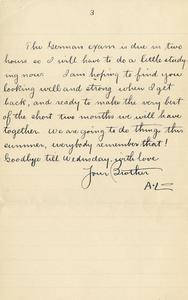 3
The German exam is due in two
hours so I will have to do a little study
ing now. I am hoping to find you
looking well and strong when I get
back, and ready to make the very best
of the short two months we will have
together. We are going to do things this
summer, everybody remember that!
Goodbye till Wednesday, with love
Your Brother